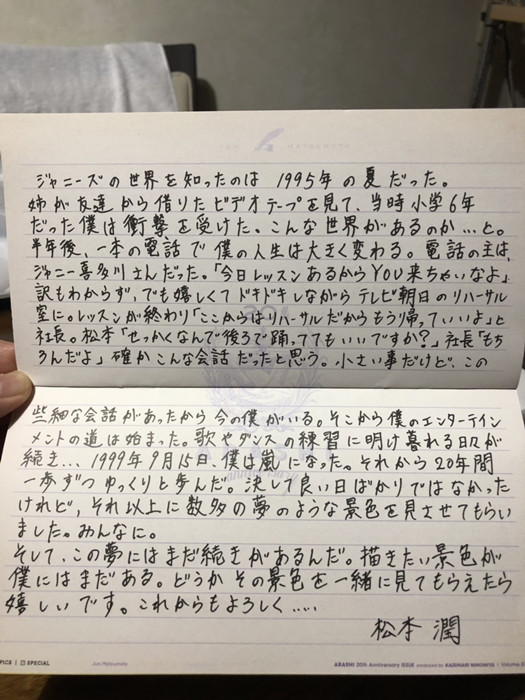 ジャニーズの世界を知ったのは 1995年の夏だった。
姉が友達から借りたビデオテープを見て、当時小学6年
だった僕は衝撃を受けた。こんな世界があるのか…と。
半年後、一本の電話で僕の人生は大きく変わる。電話の主は、
ジャニー喜多川さんだった。「今日レッスンあるからYOU来ちゃいなよ」
訳もわからず、でも嬉しくてドキドキしながらテレビ朝日のリハーサル
室に。レッスンが終わり「ここからはリハーサルだからもう帰っていいよ」と
社長。松本「せっかくなんで後ろで踊っててもいいですか?」社長「もち
ろんだよ」確かこんな会話だったと思う。小さい事だけど、この
些細な会話があったから今の僕がいる。そこから僕のエンターテイン
メントの道は始まった。歌やダンスの練習に明け暮れる日々が
続き… 1999年9月15日、僕は嵐になった。それから20年間
一歩ずつゆっくりと歩んだ。決して良い日ばかりではなかった
けれど、それ以上に数多の夢のような景色を見させてもらい
ました。みんなに。
そして、この夢にはまだ続きがあるんだ。描きたい景色が
僕にはまだある。どうかその景色を一緒に見てもらえたら
嬉しいです。これからもよろしく……
松本 潤
PICS | SPECIAL
Jun Matsumoto
ARASHI 20th Anniversary ISSUE produced by KAZUNARI NINOMIYA | Volume